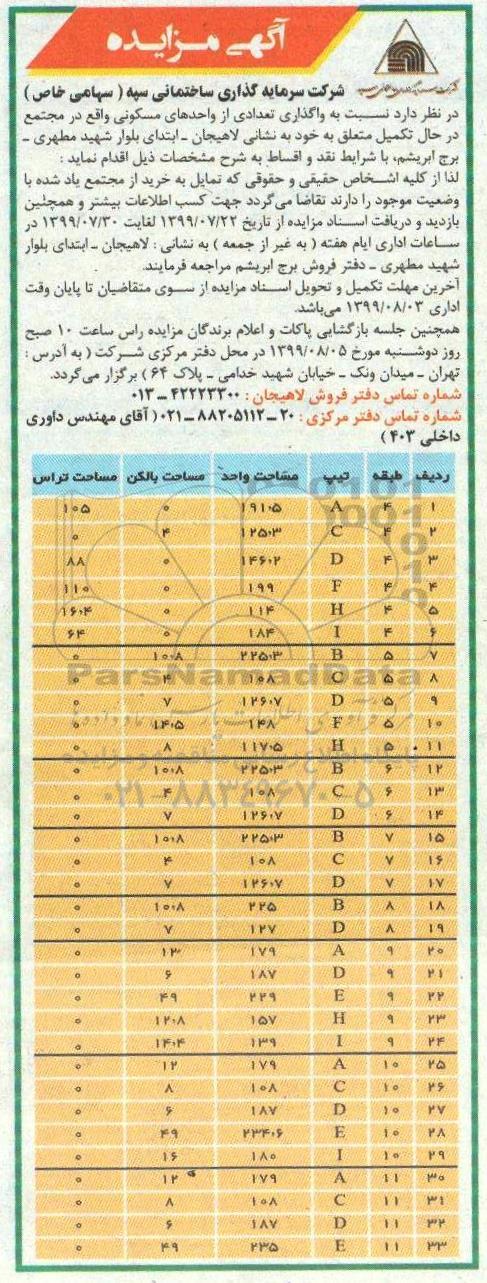 آگهی مزایده
شرکت سرمایه گذاری ساختمانی سپه ( سهامی خاص )
در نظر دارد نسبت به واگذاری تعدادی از واحدهای مسکونی واقع در مجتمع
در حال تکمیل متعلق به خود به نشانی لاهیجان ـ ابتدای بلوار شهید مطهری ـ
برج ابریشم، با شرایط نقد و اقساط به شرح مشخصات ذیل اقدام نماید :
لذا از کلیه اشخاص حقیقی و حقوقی که تمایل به خرید از مجتمع یاد شده با
وضعیت موجود را دارند تقاضا می‌گردد جهت کسب اطلاعات بیشتر و همچنین
بازدید و دریافت اسناد مزایده از تاریخ ۱۳۹۹/۰۷/۲۲ لغایت ۱۳۹۹/۰۷/۳۰ در
ساعات اداری ایام هفته ( به غیر از جمعه ) به نشانی : لاهیجان ـ ابتدای بلوار
شهید مطهری ـ دفتر فروش برج ابریشم مراجعه فرمایند.
آخرین مهلت تکمیل و تحویل اسناد مزایده از سوی متقاضیان تا پایان وقت
اداری ۱۳۹۹/۰۸/۰۳ می‌باشد.
همچنین جلسه بازگشایی پاکات و اعلام برندگان مزایده راس ساعت ۱۰ صبح
روز دوشنبه مورخ ۱۳۹۹/۰۸/۰۵ در محل دفتر مرکزی شرکت ( به آدرس :
تهران ـ میدان ونک ـ خیابان شهید خدامی ـ پلاک ۶۴ ) برگزار می‌گردد.
شماره تماس دفتر فروش لاهیجان : ۴۲۲۲۳۳۰۰ ـ ۰۱۳
شماره تماس دفتر مرکزی : ۲۰ـ۸۸۲۰۵۱۱۲ـ۰۲۱ ( آقای مهندس داوری
داخلی ۴۰۳ )
ردیف طبقه تیپ مساحت واحد مساحت بالکن مساحت تراس
۱ ۴ A ۱۹۱.۵ ۰ ۱۰۵
۲ ۴ C ۱۲۵.۳ ۴ ۰
۳ ۴ D ۱۴۶.۲ ۰ ۸۸
۴ ۴ F ۱۹۹ ۰ ۱۱۰
۵ ۴ H ۱۱۴ ۰ ۱۶.۴
۶ ۴ I ۱۸۴ ۰ ۶۴
۷ ۵ B ۲۲۵.۳ ۱۰.۸ ۰
۸ ۵ C ۱۰۸ ۴ ۰
۹ ۵ D ۱۲۶.۷ ۷ ۰
۱۰ ۵ F ۱۴۸ ۱۴.۵ ۰
۱۱ ۵ H ۱۱۷.۵ ۸ ۰
۱۲ ۶ B ۲۲۵.۳ ۱۰.۸ ۰
۱۳ ۶ C ۱۰۸ ۴ ۰
۱۴ ۶ D ۱۲۶.۷ ۷ ۰
۱۵ ۷ B ۲۲۵.۳ ۱۰.۸ ۰
۱۶ ۷ C ۱۰۸ ۴ ۰
۱۷ ۷ D ۱۲۶.۷ ۷ ۰
۱۸ ۸ B ۲۲۵ ۱۰.۸ ۰
۱۹ ۸ D ۱۲۷ ۷ ۰
۲۰ ۹ A ۱۷۹ ۱۳ ۰
۲۱ ۹ D ۱۸۷ ۶ ۰
۲۲ ۹ E ۲۲۹ ۴۹ ۰
۲۳ ۹ H ۱۵۷ ۱۲.۸ ۰
۲۴ ۹ I ۱۳۹ ۱۴.۴ ۰
۲۵ ۱۰ A ۱۷۹ ۱۲ ۰
۲۶ ۱۰ C ۱۰۸ ۸ ۰
۲۷ ۱۰ D ۱۸۷ ۶ ۰
۲۸ ۱۰ E ۲۳۴.۶ ۴۹ ۰
۲۹ ۱۰ I ۱۸۰ ۱۶ ۰
۳۰ ۱۱ A ۱۷۹ ۱۲ ۰
۳۱ ۱۱ C ۱۰۸ ۸ ۰
۳۲ ۱۱ D ۱۸۷ ۶ ۰
۳۳ ۱۱ E ۲۳۵ ۴۹ ۰
ParsNamadData
۰۲۱-۸۸۳۴۹۶۷۰-۵